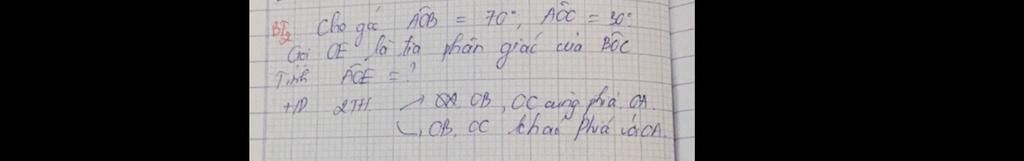 BT2 Cho góc AOB = 70°, AOC = 30°
Gọi OE là tia phân giác của BOC
Tính AOE = ?
+D 2TH → OA OB, OC cùng phía OA.
↳ OB, OC khác phía với OA.